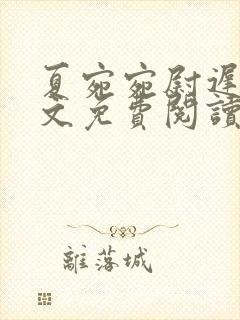 夏宛宛尉遲
文免費閱讀
離落城